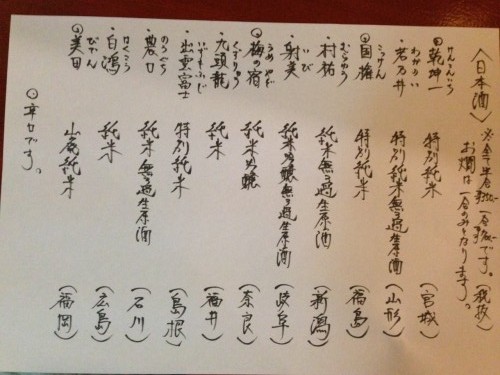 〈日本酒〉 ※全て半合 一合 です。(税抜)
お燗は一合のみとなります。
けんこんいち
乾坤一 特別純米 (宮城)
わかのい
・若乃井 特別純米無ろ過生原酒 (山形)
こっけん
国権 特別純米 (福島)
むらゆう
・村祐 純米無ろ過生原酒 (新潟)
いび
・射美 純米吟醸無ろ過生原酒 (岐阜)
うめのやど
梅の宿 純米吟醸 (奈良)
くずりゅう
・九頭龍 純米 (福井)
いずもふじ
・出雲富士 特別純米 (島根)
のうぐち
・農口 純米無ろ過生原酒 (石川)
はくこう
・白鴻 純米 (広島)
びでん
美田 山廃純米 (福岡)
辛口です。